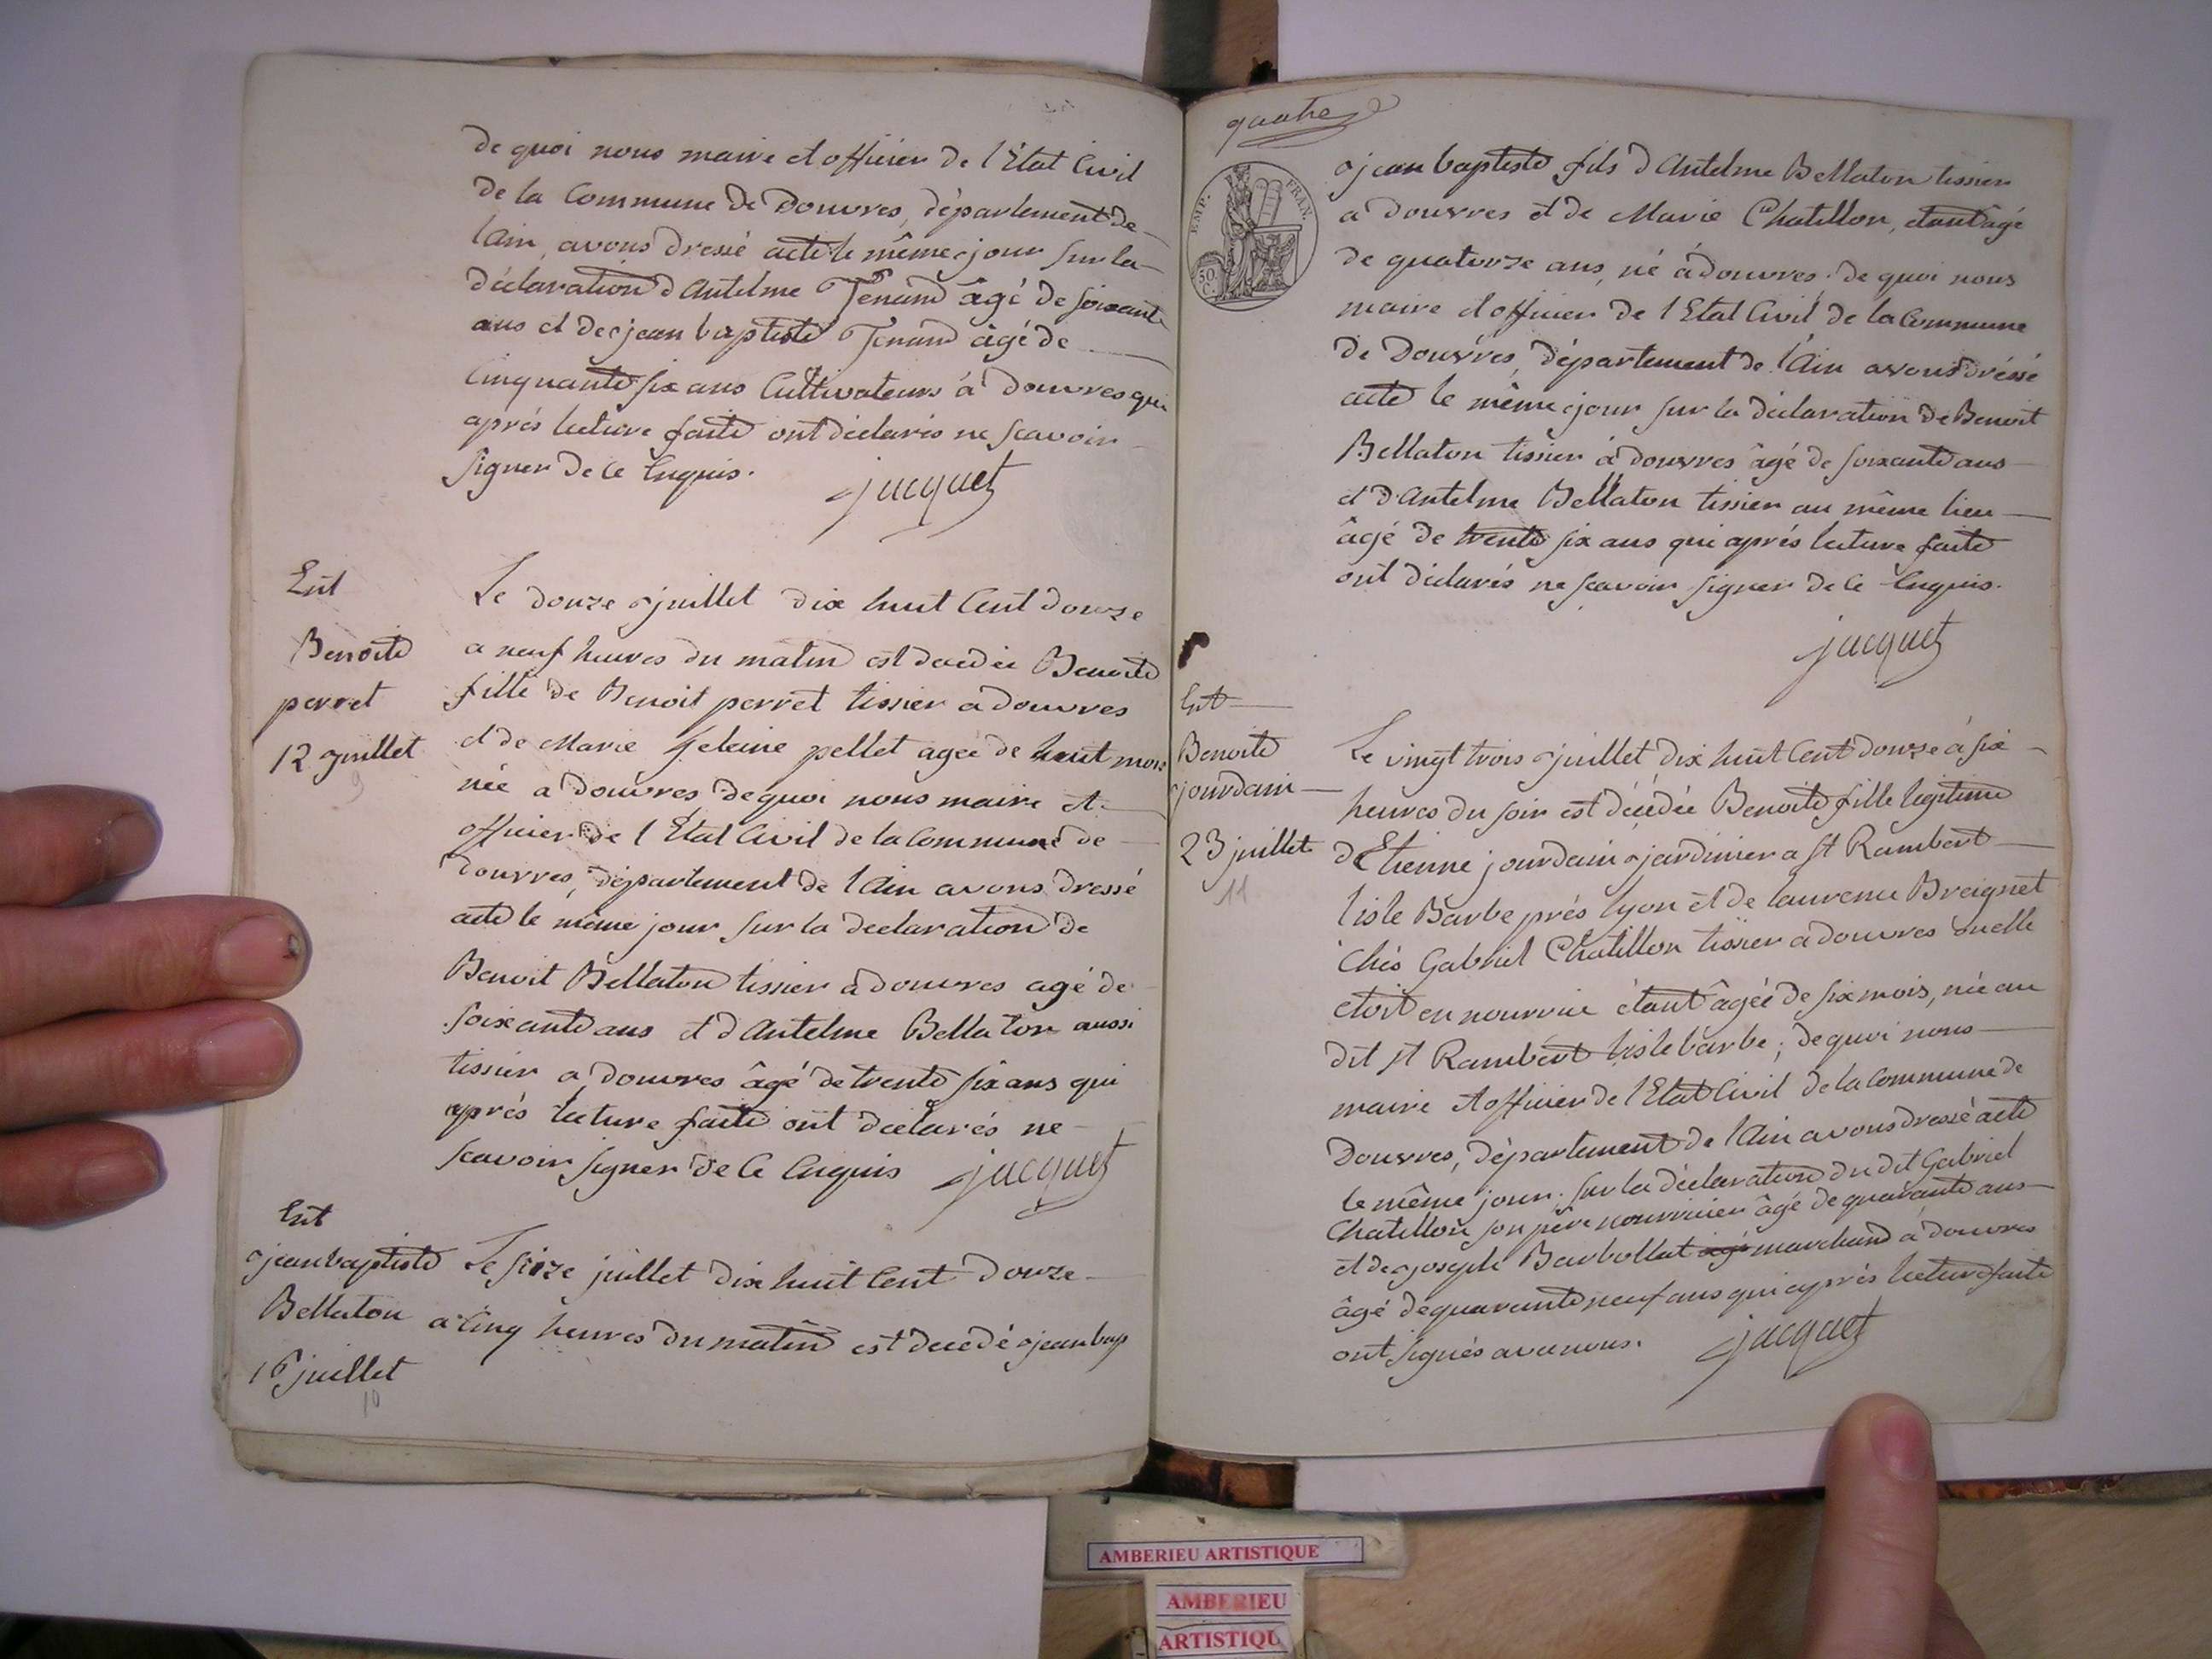 de quoi nous maire et officier de l'Etat Civil
de la Commune de Douvres, département de
l'Ain, avons dressé acte le même jour sur la
déclaration d'Antelme Tenand âgé de soixante
ans et de jean baptiste Tenand âgé de
Cinquante six ans Cultivateurs à douvres qui
aprés lecture faite ont déclarés ne scavoir
signer de ce Enquis. jacquet
Ent
Benoite
perret
12 juillet
9
Le douze juillet dix huit Cent douze
a neuf heures du matin est decedée Benoite
fille de Benoit perret tissier a douvres
et de Marie heleine pellet agée de huit mois
née a douvres, de quoi nous maire et
officier de l'Etat Civil de la Commune de
Douvres, département de l'Ain avons dressé
acte le même jour sur la declaration de
Benoit Bellaton tissier à douvres agé de
soixante ans et d'Antelme Bellaton aussi
tissier a douvres âgé de trente six ans qui
aprés lecture faite ont declarés ne
scavoir signer de Ce Enquis jacquet
Ent
jean baptiste
Bellaton
16 juillet
10
Le seize juillet dix huit Cent douze
a Cinq heures du matin est decedé jean bap
quatre
EMP. FRAN.
50 C.
jean baptiste fils d'Antelme Bellaton tissier
a douvres et de Marie Chatillon, étant âgé
de quatorze ans, né à douvres, de quoi nous
maire et officier de l'Etat Civil de la Commune
de Douvres, département de l'Ain avons dréssé
acte le même jour sur la déclaration de Benoit
Bellaton tissier à douvres âgé de soixante ans
et d'Antelme Bellaton tissier au même lieu
âgé de trente six ans qui aprés lecture faite
ont déclarés ne scavoir signer de Ce Enquis.
jacquet
Ent
Benoite
jourdain
23 juillet
11
Le vingt trois juillet dix huit Cent douze à six
heures du soir est décédée Benoite fille légitime
d'Etienne jourdain jardinier a St Rambert
l'isle Barbe prés lyon et de laurence Breignet
Chés Gabriel Chatillon tissier a douvres ou elle
etoit en nourrice étant âgée de six mois, née au
dit St Rambert l'isle barbe; de quoi nous
maire et officier de l'Etat Civil de la Commune de
Douvres, département de l'Ain avons dressé acte
le même jour. sur la déclaration du dit Gabriel
Chatillon son pére nourricier âgé de quarante ans
et de joseph Barbollat âgé marchand à douvres
âgé de quarante neuf ans qui aprés lecture faite
ont signés avec nous. jacquet
AMBERIEU ARTISTIQUE
AMBERIEU
ARTISTIQU